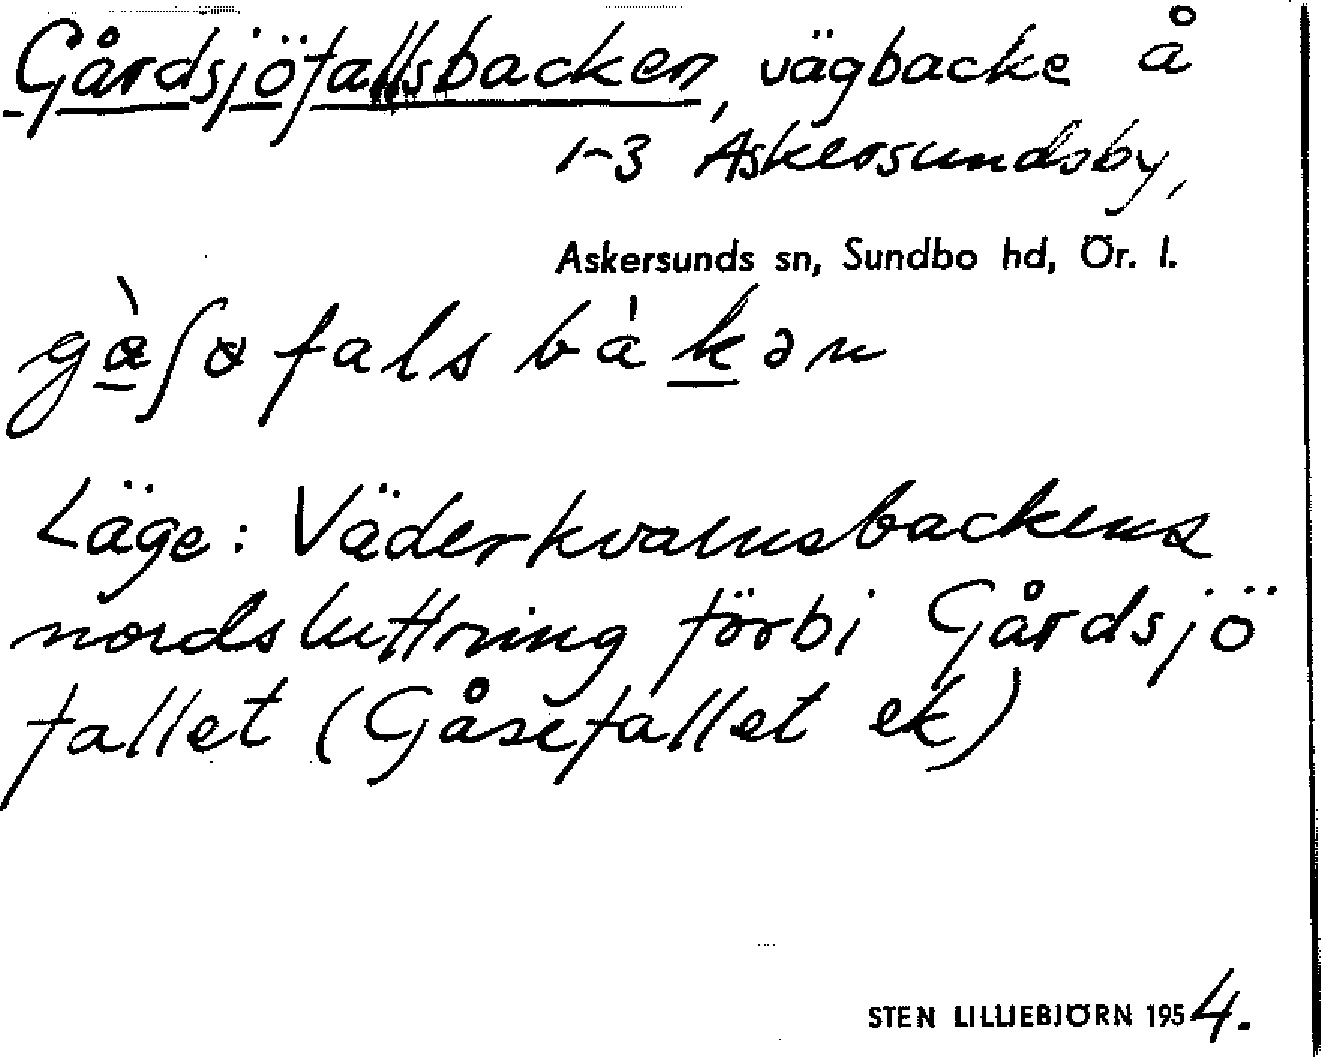 Gårdsjöfallsbacken, vägbacke å
1-3 Askersundsby,
Askersunds sn, Sundbo hd, Ör. l.
Läge: Väderkvarnsbackens
nordsluttning förbi Gårdsjö
fallet (Gåsefallet ek)
STEN LILLIEBJÖRN 1954.